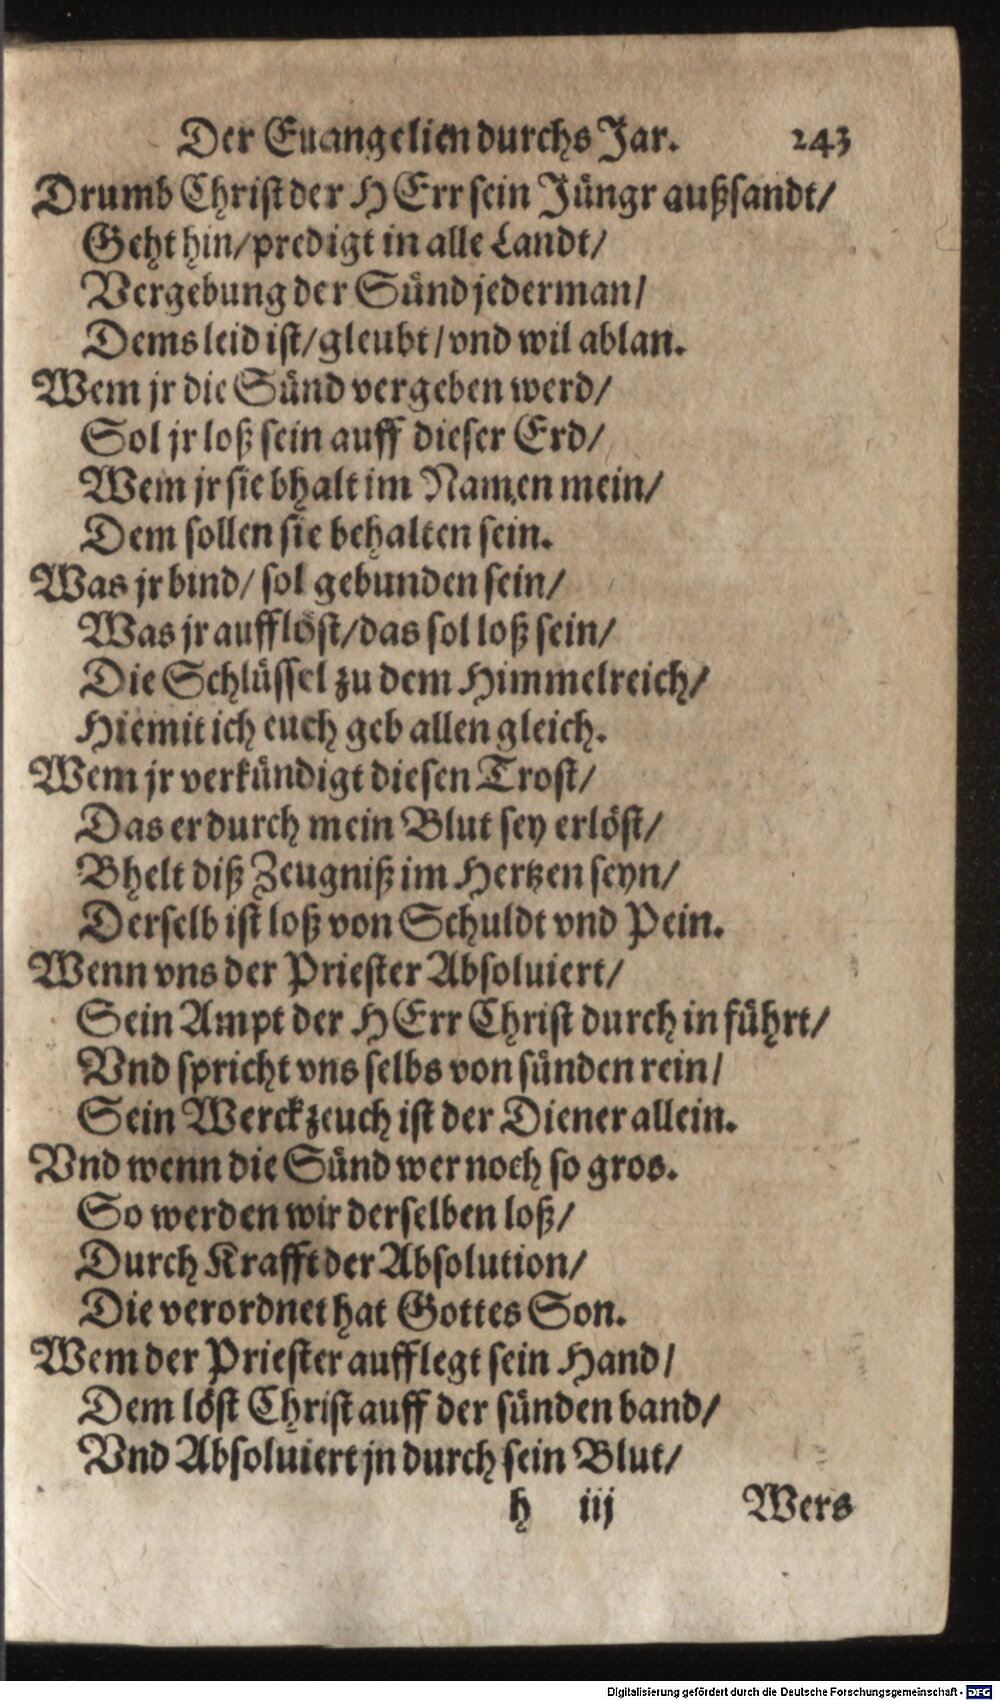 Der Euangelien durchs Jar. 243
Drumb Christ der HErr sein Jüngr außsandt/
Geht hin/ predigt in alle Landt/
Vergebung der Sünd jederman/
Dems leid ist/ gleubt/ vnd wil ablan.
Wem jr die Sünd vergeben werd/
Sol jr loß sein auff dieser Erd/
Wem jr sie bhalt im Namen mein/
Dem sollen sie behalten sein.
Was jr bind/ sol gebunden sein/
Was jr aufflöst/ das sol loß sein/
Die Schlüssel zu dem Himmelreich/
Hiemit ich euch geb allen gleich.
Wem jr verkündigt diesen Trost/
Das er durch mein Blut sey erlöst/
Bhelt diß Zeugniß im Hertzen seyn/
Derselb ist loß von Schuldt vnd Pein.
Wenn vns der Priester Absoluiert/
Sein Ampt der HErr Christ durch in führt/
Vnd spricht vns selbs von sünden rein/
Sein Werckzeuch ist der Diener allein.
Vnd wenn die Sünd wer noch so gros.
So werden wir derselben loß/
Durch Krafft der Absolution/
Die verordnet hat Gottes Son.
Wem der Priester aufflegt sein Hand/
Dem löst Christ auff der sünden band/
Vnd Absoluiert jn durch sein Blut/
h iij Wers
Digitalisierung gefördert durch die Deutsche Forschungsgemeinschaft - DFG